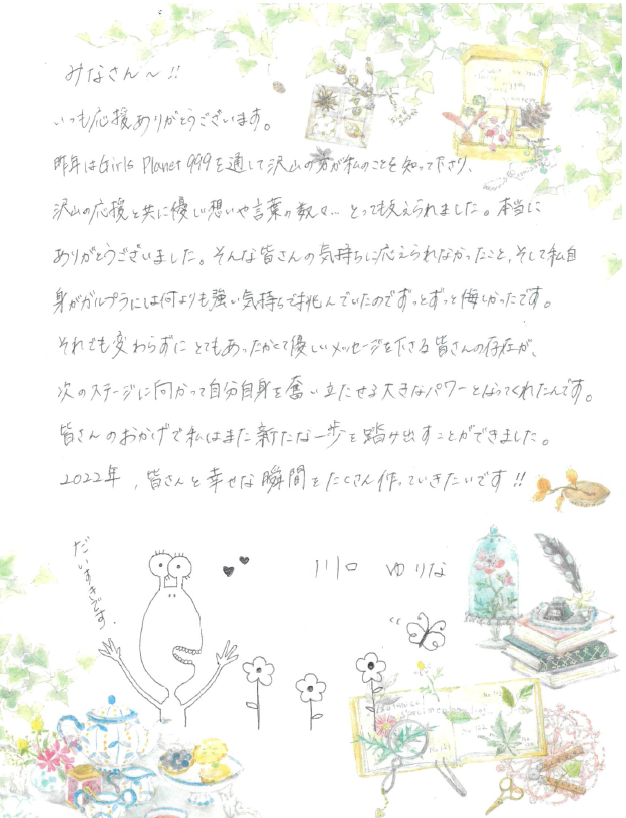 みなさん〜!!
いつも応援ありがとうございます。
昨年はGirls Planet 999を通して沢山の方が私のことを知って下さり、
沢山の応援と共に優しい想いや言葉の数々… とっても支えられました。本当に
ありがとうございました。そんな皆さんの気持ちに応えられなかったこと、そして私自
身がガルプラには何よりも強い気持ちで挑んでいたのでずっとずっと悔しかったです。
それでも変わらずにとてもあったかくて優しいメッセージを下さる皆さんの存在が、
次のステージに向かって自分自身を奮い立たせる大きなパワーとなってくれたんです。
皆さんのおかげで私はまた新たな一歩を踏み出すことができました。
2022年、皆さんと幸せな瞬間をたくさん作っていきたいです!!
だいすきです。
川口 ゆりな